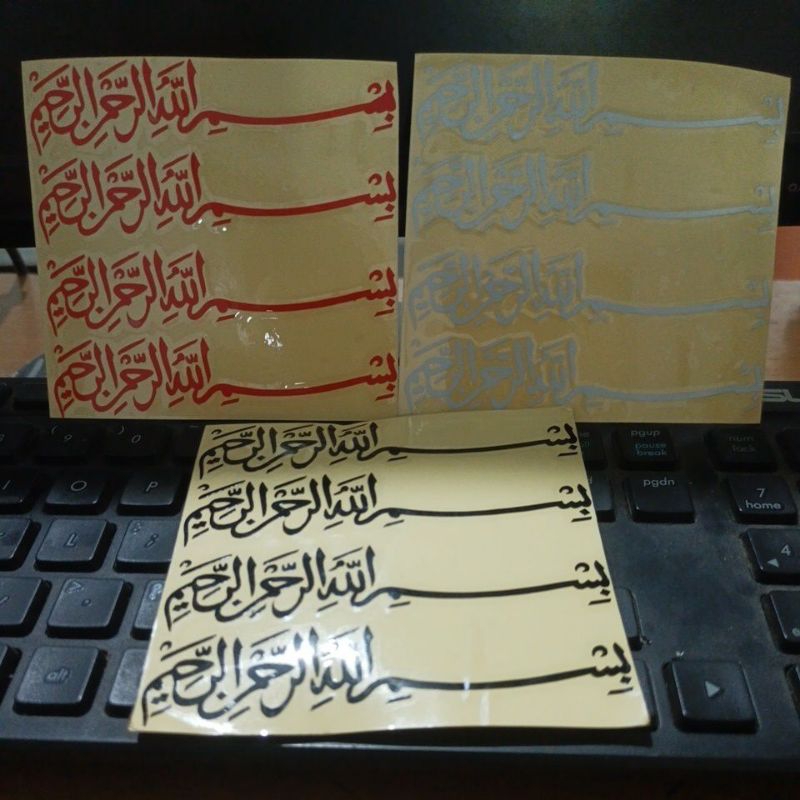 بِسْمِ اللَّهِ الرَّحْمٰنِ الرَّحِيمِ
بِسْمِ اللَّهِ الرَّحْمٰنِ الرَّحِيمِ
بِسْمِ اللَّهِ الرَّحْمٰنِ الرَّحِيمِ
بِسْمِ اللَّهِ الرَّحْمٰنِ الرَّحِيمِ
بِسْمِ اللَّهِ الرَّحْمٰنِ الرَّحِيمِ
بِسْمِ اللَّهِ الرَّحْمٰنِ الرَّحِيمِ
بِسْمِ اللَّهِ الرَّحْمٰنِ الرَّحِيمِ
بِسْمِ اللَّهِ الرَّحْمٰنِ الرَّحِيمِ
بِسْمِ اللَّهِ الرَّحْمٰنِ الرَّحِيمِ
بِسْمِ اللَّهِ الرَّحْمٰنِ الرَّحِيمِ
بِسْمِ اللَّهِ الرَّحْمٰنِ الرَّحِيمِ
بِسْمِ اللَّهِ الرَّحْمٰنِ الرَّحِيمِ
pgup
pause
break
num
lock
I O P
pgdn
7
home
L
4
alt